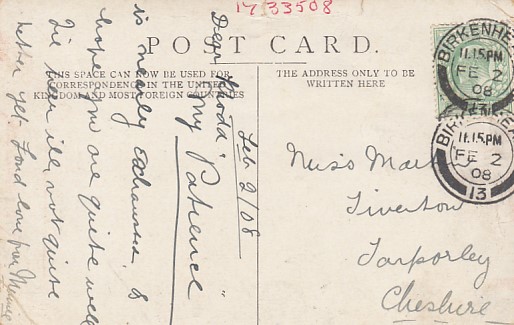 1733508
POST CARD.
THIS SPACE CAN NOW BE USED FOR
CORRESPONDENCE IN THE UNITED
KINGDOM AND MOST FOREIGN COUNTRIES
THE ADDRESS ONLY TO BE
WRITTEN HERE
BIRKENHEAD
11.15PM
FE 2
08
13
BIRKENHEAD
11.15PM
FE 2
08
13
Feb 2/08
Dear
"my Patience"
is nearly exhausted, &
hope you are quite well
I've been ill, not quite
better yet. Fond love from
Miss
Tiverton
Tarporley
Cheshire